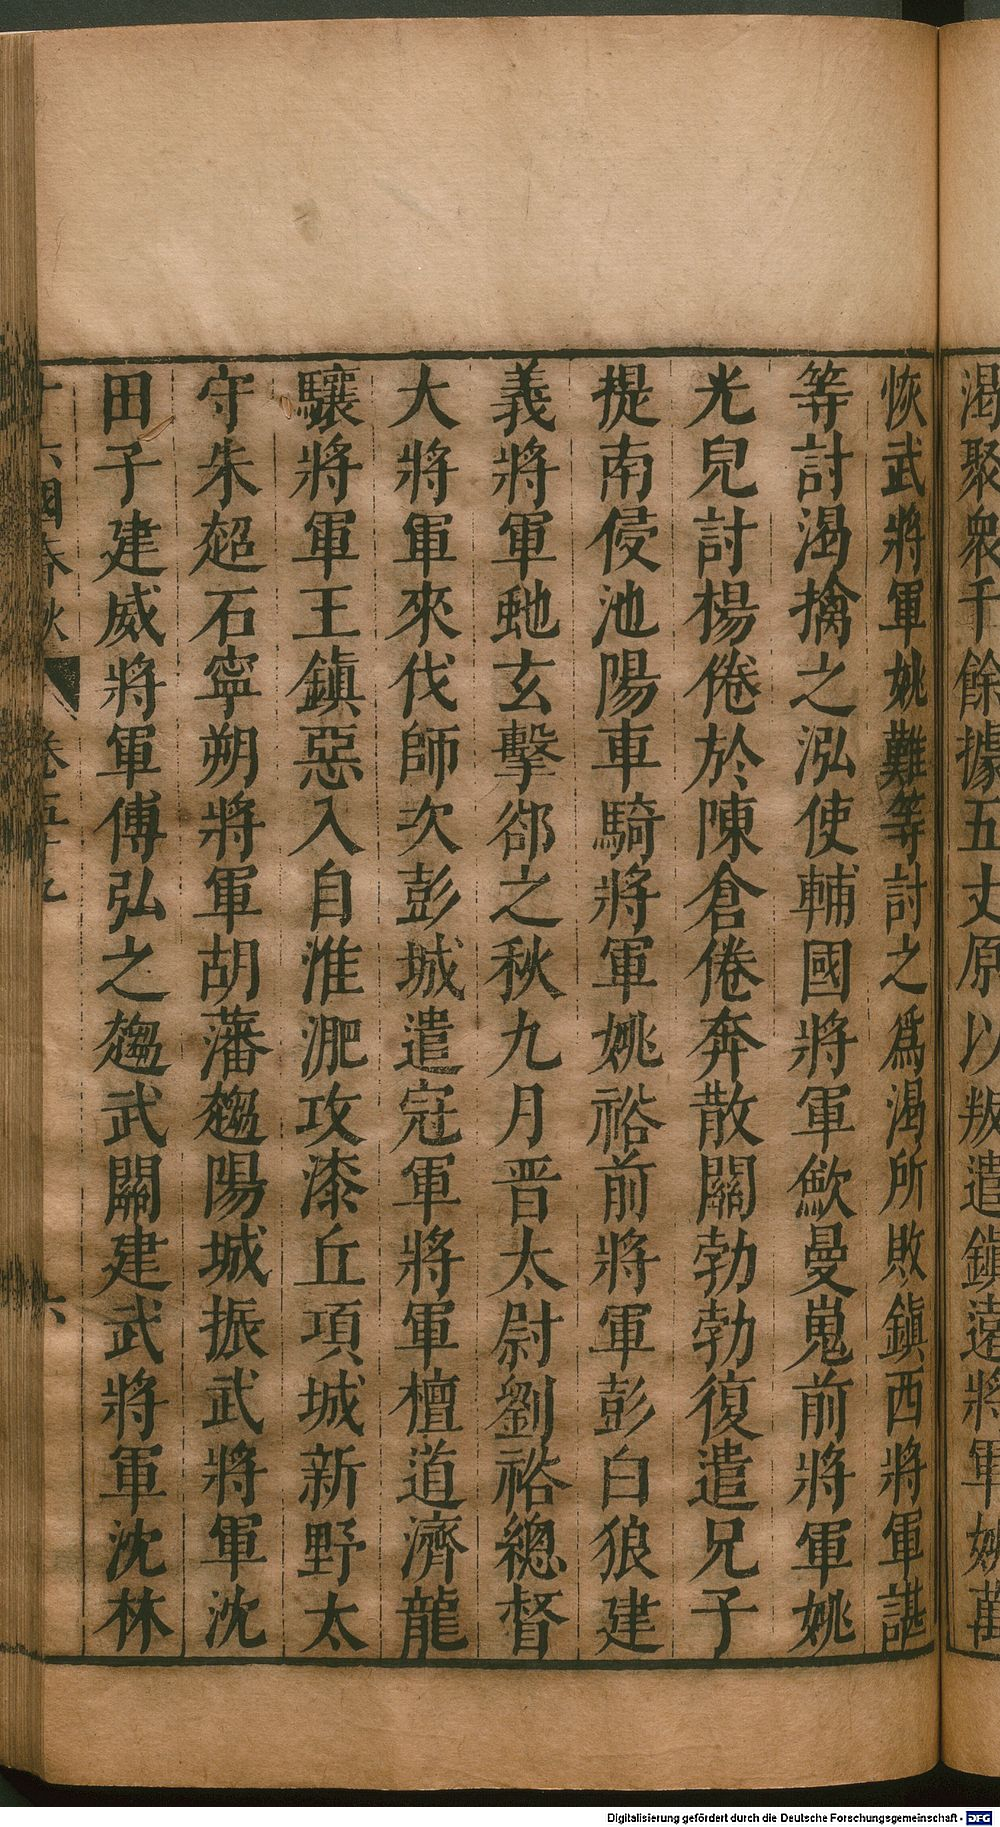 渴聚衆千餘據五丈原以叛遣鎮遠將軍姚萬
恢武將軍姚難等討之爲渴所敗鎮西將軍諶
等討渴擒之泓使輔國將軍歛曼嵬前將軍姚
光兒討楊倦於陳倉倦奔散關勃勃復遣兄子
提南侵池陽車騎將軍姚裕前將軍彭白狼建
義將軍虵玄擊郤之秋九月晋太尉劉裕總督
大將軍來伐師次彭城遣冠軍將軍檀道濟龍
驤將軍王鎮惡入自淮淝攻漆丘項城新野太
守朱超石寧朔將軍胡藩趨陽城振武將軍沈
田子建威將軍傅弘之趨武關建武將軍沈林
十六國春秋 卷五十九 六
Digitalisierung gefördert durch die Deutsche Forschungsgemeinschaft - DFG